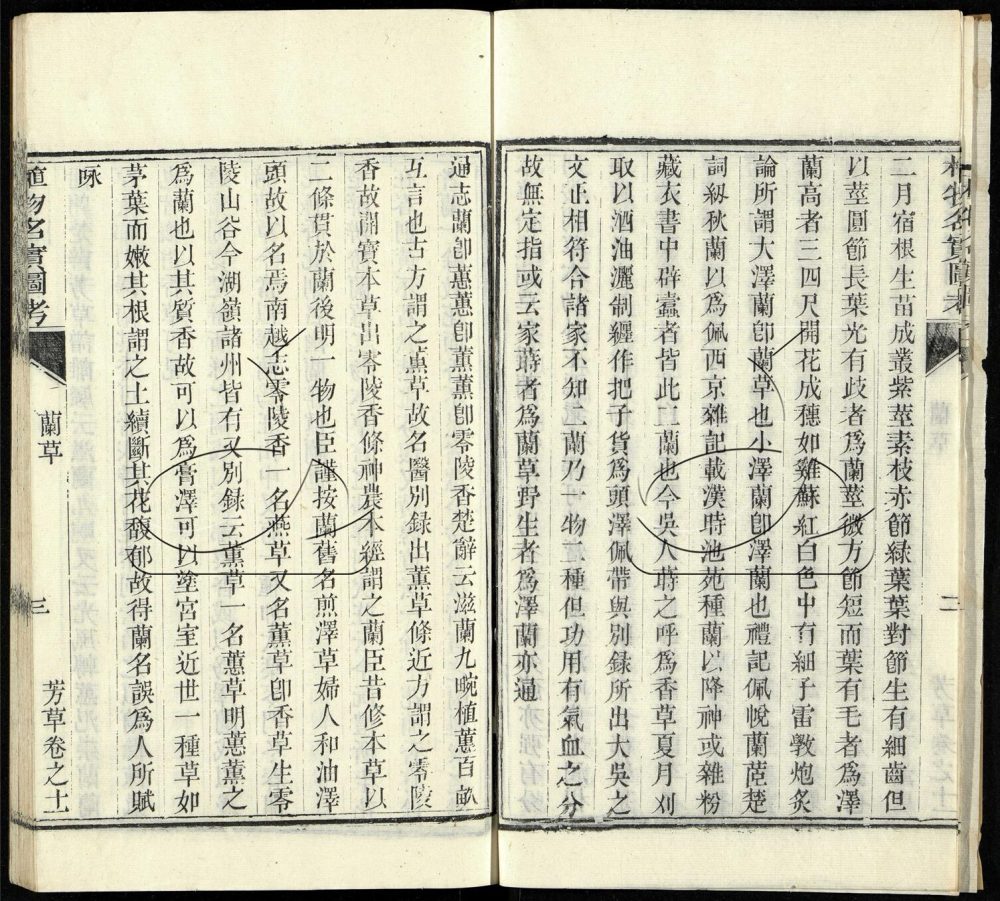 植物名實圖考
蘭草
二
芳草卷之十
二月宿根生苗成叢紫莖素枝赤節綠葉葉對節生有細齒但
以莖圓節長葉光有歧者爲蘭莖微方節短而葉有毛者爲澤
蘭高者三四尺開花成穗如雞蘇紅白色中有細子雷斆炮炙
論所謂大澤蘭卽蘭草也小澤蘭卽澤蘭也禮記佩帨蘭茝楚
詞紉秋蘭以爲佩西京雜記載漢時池苑種蘭以降神或雜粉
藏衣書中辟蠹者皆此二蘭也今吳人蒔之呼爲香草夏月刈
取以酒油灑制纏作把子貨爲頭澤佩帶與別錄所出大吳之
文正相符合諸家不知二蘭乃一物二種但功用有氣血之分
故無定指或云家蒔者爲蘭草野生者爲澤蘭亦通
通志蘭卽蕙蕙卽薰薰卽零陵香楚辭云滋蘭九畹植蕙百畝
互言也古方謂之薰草故名醫別錄出薰草條近方謂之零陵
香故開寶本草出零陵香條神農本經謂之蘭臣昔修本草以
二條貫於蘭後明一物也臣謹按蘭舊名煎澤草婦人和油澤
頭故以名焉南越志零陵香一名燕草又名薰草卽香草生零
陵山谷今湖嶺諸州皆有又別錄云薰草一名蕙草明蕙薰之
爲蘭也以其質香故可以爲膏澤可以塗宮室近世一種草如
茅葉而嫩其根謂之土續斷其花馥郁故得蘭名誤爲人所賦
咏
植物名實圖考
蘭草
三
芳草卷之十一